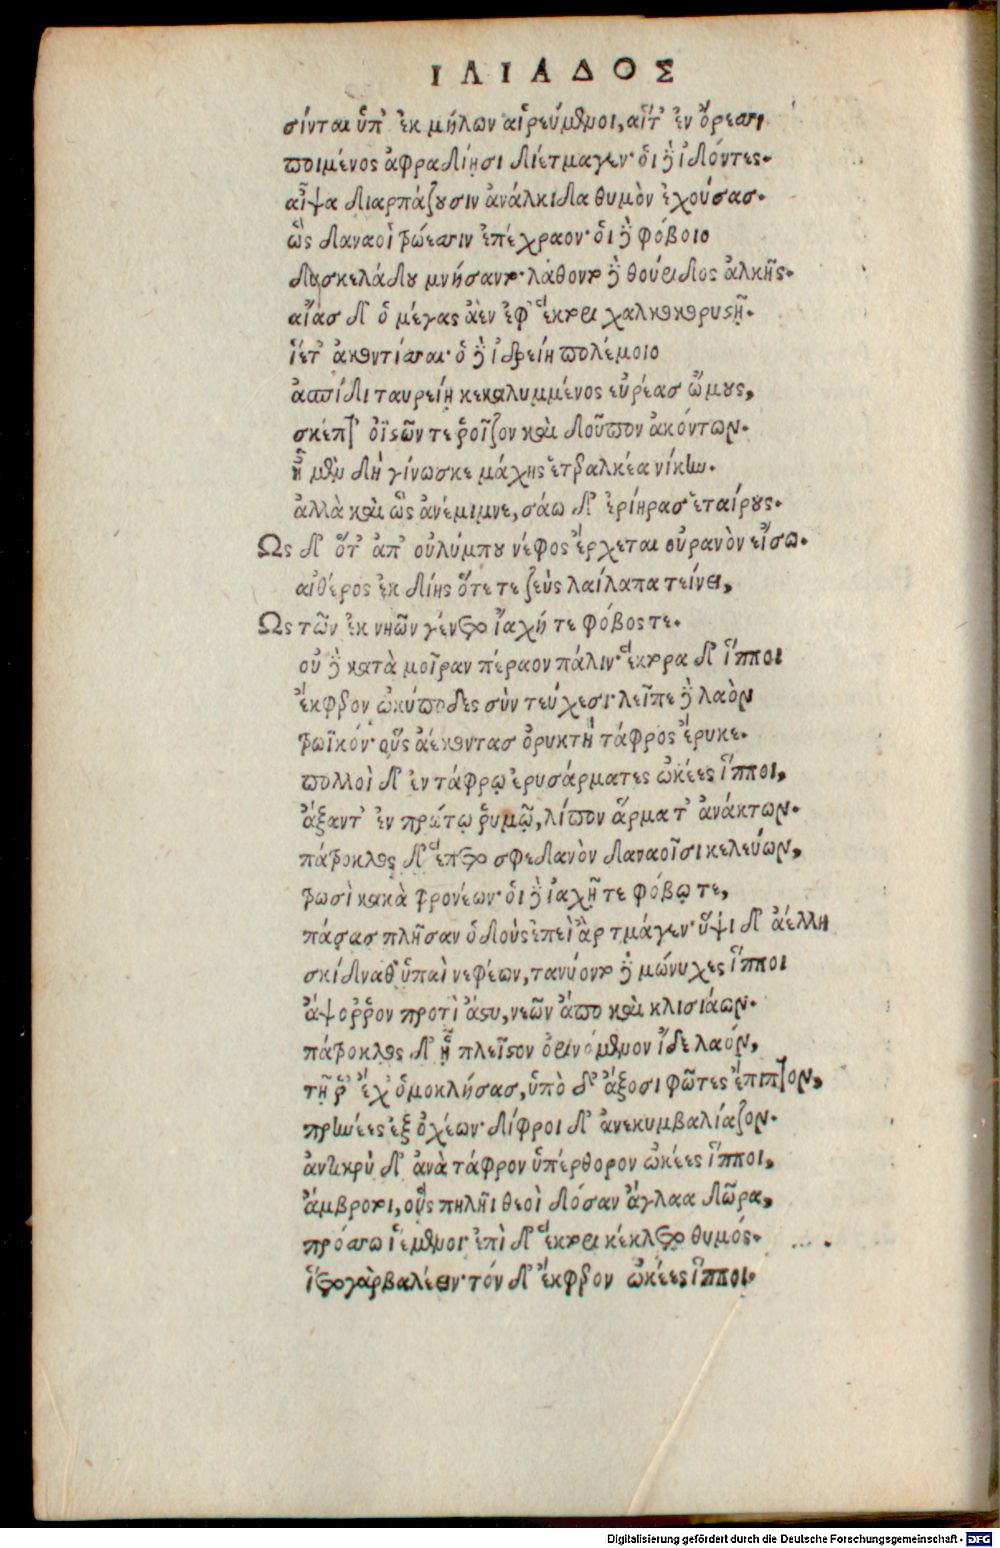 ΙΛΙΑΔΟΣ
σίνται ὑπ' ἐκ μήλων αἱρεύμενοι, αἵτ' ἐν ὄρεσσι
ποιμένος ἀφραδίῃσι διέτμαγεν· ὁι δὲ ἰδόντες·
αἶψα διαρπάζουσιν ἀνάλκιδα θυμὸν ἐχούσας·
ὣς δαναοὶ τρώεσσιν ἐπέχραον· ὁι δὲ φόβοιο
δυσκελάδου μνήσαντο· λάθοντο δὲ θούειδος ἀλκῆς·
αἴας δ' ὁ μέγας ἀὲν ἐφ' ἕκτορει χαλκοκορυστῇ·
ἵετ' ἀκοντίσσαι· ὁ δὲ ἰδρείῃ πολέμοιο
ἀσπίδι ταυρείῃ κεκαλυμμένος εὐρέας ὤμους,
σκέπτετ' ὀϊστῶν τε ῥοῖζον καὶ δοῦπον ἀκόντων·
ἦ μὲν δὴ γίνωσκε μάχης ἑτεραλκέα νίκην·
ἀλλὰ καὶ ὣς ἀνέμιμνε, σάω δ' ἐρίηρας ἑταίρους·
Ως δ' ὅτ' ἀπ' οὐλύμπου νέφος ἔρχεται οὐρανὸν εἴσω·
αἰθέρος ἐκ δίης ὅτε τε ζεὺς λαίλαπα τείνει,
Ως τῶν ἐκ νηῶν γένετο ἰαχή τε φόβος τε·
οὐ δὲ κατὰ μοῖραν πέραον πάλιν· ἕκτορα δ' ἵπποι
ἔκφερον ὠκύποδες σὺν τεύχεσι· λεῖπε δὲ λαὸν
τρωϊκόν· οὓς ἀέκοντας ὀρυκτὴ τάφρος ἔρυκε·
πολλοὶ δ' ἐν τάφρῳ ἐρυσάρματες ὠκέες ἵπποι,
ἄξαντ' ἐν πρώτῳ ῥυμῷ, λίπον ἅρματ' ἀνάκτων·
πάτροκλος δ' ἕπετο σφεδανὸν δαναοῖσι κελεύων,
τρωσὶ κακὰ φρονέων· ὁι δὲ ἰαχῇ τε φόβῳ τε,
πάσας πλῆσαν ὁδούς ἐπεὶ ἂρ τμάγεν· ὕψι δ' ἀέλλη
σκίδναθ' ὑπαὶ νεφέων, τανύοντο δὲ μώνυχες ἵπποι
ἄψορρον προτὶ ἄστυ, νεῶν ἄπο καὶ κλισιάων·
πάτροκλος δ' ᾗ πλεῖστον ὀρινόμενον ἴδε λαόν,
τῇ ῥ' ἔχ' ὁμοκλήσας, ὑπὸ δ' ἄξοσι φῶτες ἔπιπτον,
πρηνέες ἐξ ὀχέων· δίφροι δ' ἀνεκυμβαλίαζον·
ἀντικρὺ δ' ἀνὰ τάφρον ὑπέρθορον ὠκέες ἵπποι,
ἄμβροτοι, οὓς πηλῆι θεοὶ δόσαν ἄγλαα δῶρα,
πρόσσω ἱέμενοι· ἐπὶ δ' ἕκτορει κέκλετο θυμός·
ἵετο γὰρ βαλέειν· τόν δ' ἔκφερον ὠκέες ἵπποι·
Digitalisierung gefördert durch die Deutsche Forschungsgemeinschaft - DFG